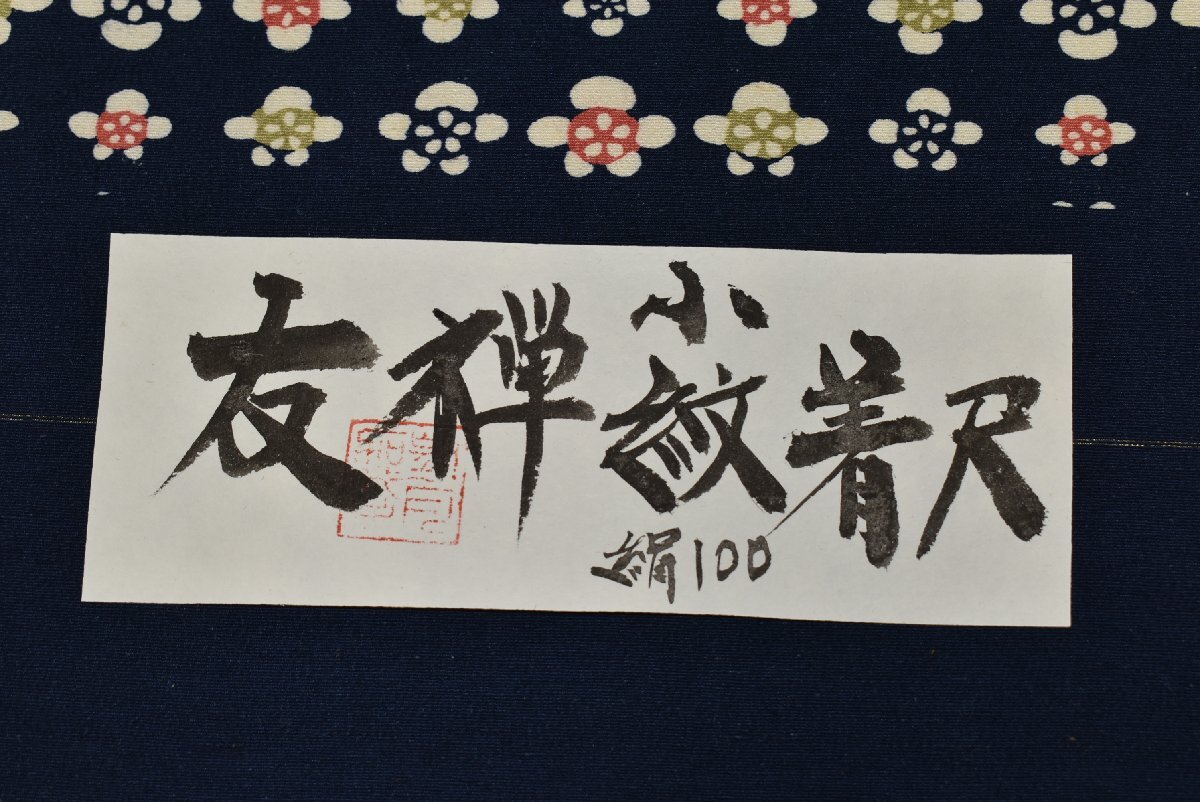 友禅小紋着尺
絹100